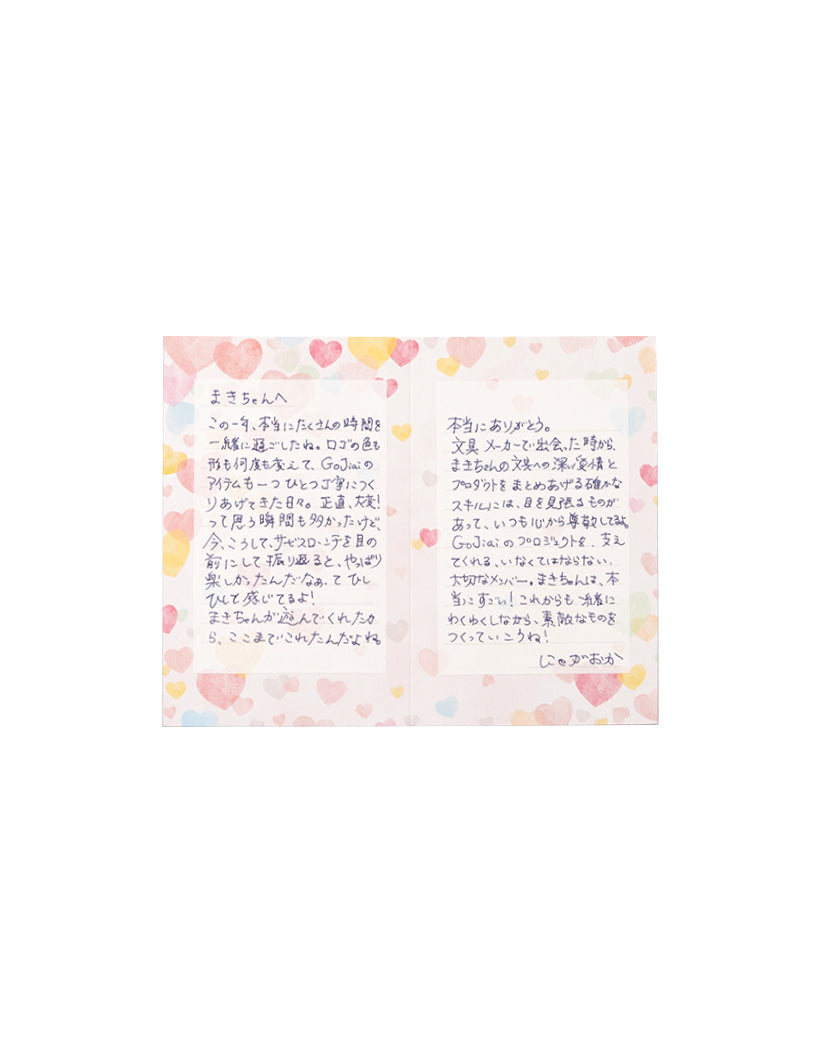 まきちゃんへ
この一年、本当にたくさんの時間を
一緒に過ごしたね。ロゴの色も
形も何度も変えて、GoJiaiの
アイテムも一つひとつ丁寧につく
りあげてきた日々。正直、大変!
って思う瞬間も多かったけど、
今、こうして、サービスローンチを目の
前にして振り返ると、やっぱり
楽しかったんだなぁ、てひし
ひしと感じてるよ!
まきちゃんが遊んでくれたか
ら、ここまでこれたんだよね。
本当にありがとう。
文具メーカーで出会った時から、
まきちゃんの文具への深い愛情と
プロダクトをまとめあげる確かな
スキルには、目を見張るものが
あって、いつも心から尊敬してるよ。
GoJiaiのプロジェクトを、支え
てくれる、いなくてはならない、
大切なメンバー。まきちゃんは、本
当にすごい!これからも一緒に
わくわくしながら、素敵なものを
つくっていこうね!